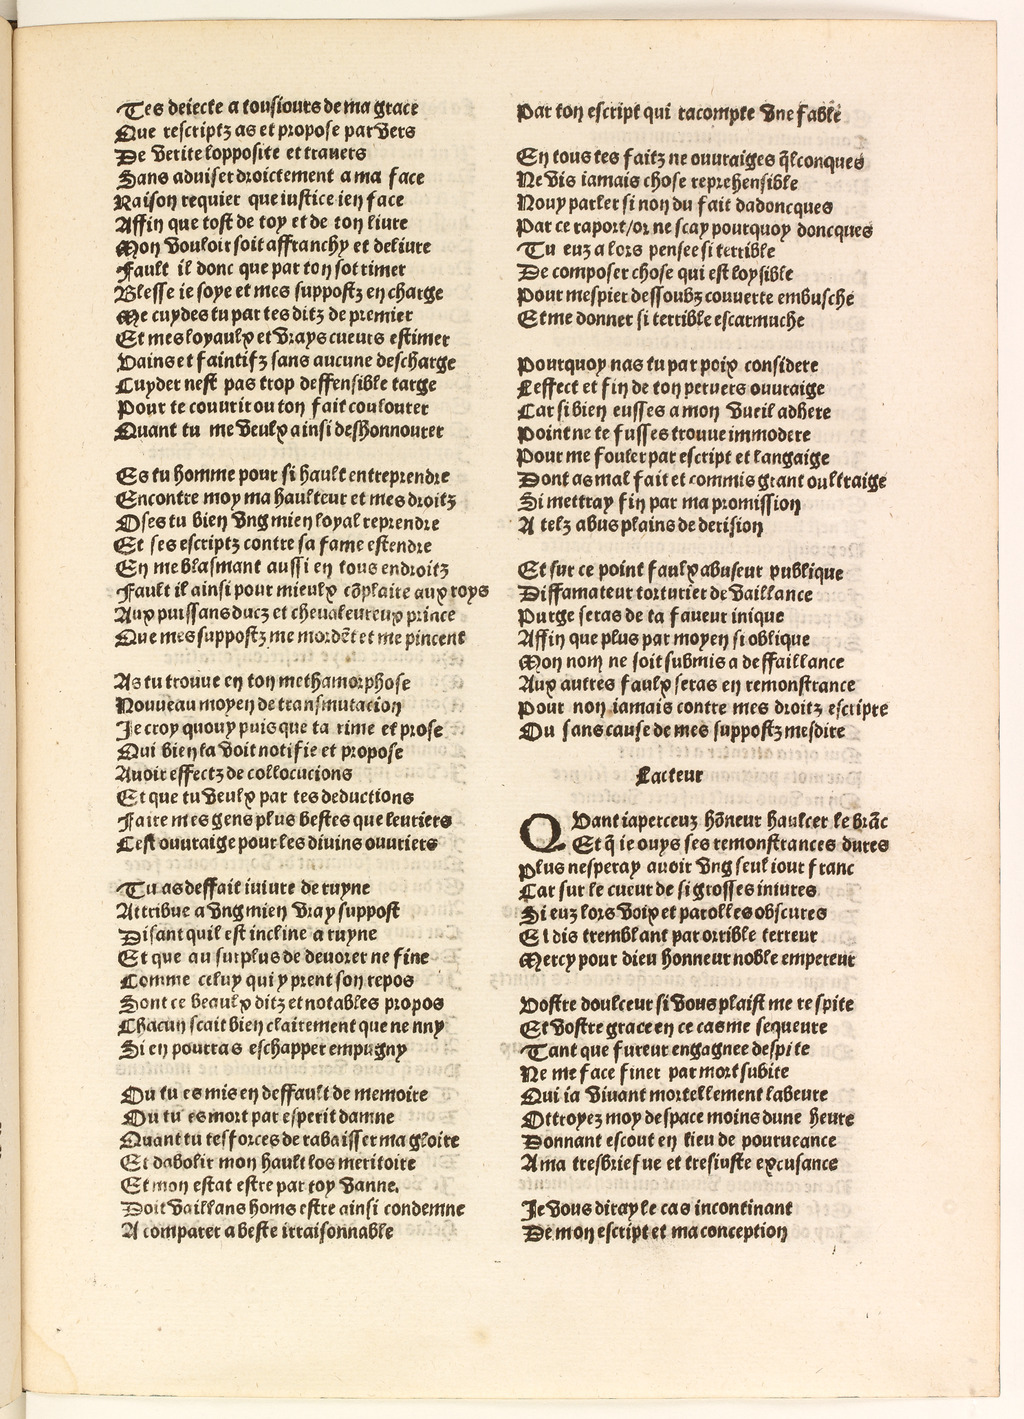 Tes deiecte a tousiours de ma grace
Que rescriptz as et propose par vers
De verite lopposite et travers
Sans adviser droictement a ma face
Raison requier que iustice ien face
Affin que tost de toy et de ton livre
Mon vouloir soit affranchy et delivre
Fault il donc que par ton sot rimer
Blesse ie soye et mes suppostz en charge
Me cuydes tu par tes ditz de premier
Et mes loyaulx et vrays cueurs estimer
Vains et faintifz sans aucune descharge
Cuyder nest pas trop deffensible targe
Pour te couurir ou ton fait coulourer
Quant tu me veulx ainsi deshonnourer

Es tu homme pour si hault entreprendre
Encontre moy ma haulteur et mes droitz
Oses tu bien vng mien loyal reprendre
Et ses escriptz contre sa fame estendre
En me blasmant aussi en tous endroitz
Fault il ainsi pour mieulx cōplaire aux roys
Aux puissans ducz et cheualeureux prince
Que mes suppostz me mordēt et me pincent

As tu trouue en ton methamorphose
Nouueau moyen de transmutacion
Je croy quouy puis que ta rime et prose
Qui bien la voit notifie et propose
Auoir effectz de collocucions
Et que tu veulx par tes deductions
Faire mes gens plus bestes que leuriers
Cest ouuraige pour les diuins ouuriers

Tu as deffait iuiure de ruyne
Attribue a vng mien vray suppost
Disant quil est incline a ruyne
Et que au surplus de deuorer ne fine
Comme celuy qui y prent son repos
Sont ce beaulx ditz et notables propos
Chacun scait bien clairement que nenny
Si en pourras eschapper empugny

Ou tu es mis en deffault de memoire
Ou tu es mort par esperit damne
Quant tu tesforces de rabaisser ma gloire
Et dabolir mon hault los meritoire
Et mon estat estre par toy vanne.
Doit vaillans homs estre ainsi condemne
A comparer a beste irraisonnable
Par ton escript qui racompte vne fable

En tous tes faitz ne ouuraiges q̄lconques
Ne vis iamais chose reprehensible
Nouy parler si non du fait dadoncques
Par ce raport/or ne scay pourquoy doncques
Tu euz alors pensee si terrible
De composer chose qui est loysible
Pour mespier dessoubz couuerte embusche
Et me donner si terrible escarmuche

Pourquoy nas tu par poix considere
Leffect et fin de ton peruers ouuraige
Car si bien eusses a mon vueil adhere
Point ne te fusses trouue immodere
Pour me fouler par escript et langaige
Dont as mal fait et commis grant oultraige
Si mettray fin par ma promission
A telz abus plains de derision

Et sur ce point faulx abuseur publique
Diffamateur torturier de vaillance
Purge seras de ta faueur inique
Affin que plus par moyen si oblique
Mon nom ne soit submis a deffaillance
Aux autres faulx seras en remonstrance
Pour non iamais contre mes droitz escripre
Ou sans cause de mes suppostz mesdire

Lacteur

Quant iaperceuz hōneur haulcer le brāc
Et q̄ ie ouys ses remonstrances dures
Plus nesperay auoir vng seul iour franc
Car sur le cueur de si grosses iniures
Si euz lors voix et parolles obscures
Et dis tremblant par orrible terreur
Mercy pour dieu honneur noble empereur

Vostre doulceur si vous plaist me respite
Et vostre grace en ce cas me sequeure
Tant que fureur engagnee despite
Ne me face finer par mort subite
Qui ia viuant mortellement labeure
Ottroyez moy despace moins dune heure
Donnant escout en lieu de pourueance
A ma tresbriefue et tresiuste excusance

Je vous diray le cas incontinant
De mon escript et ma conception